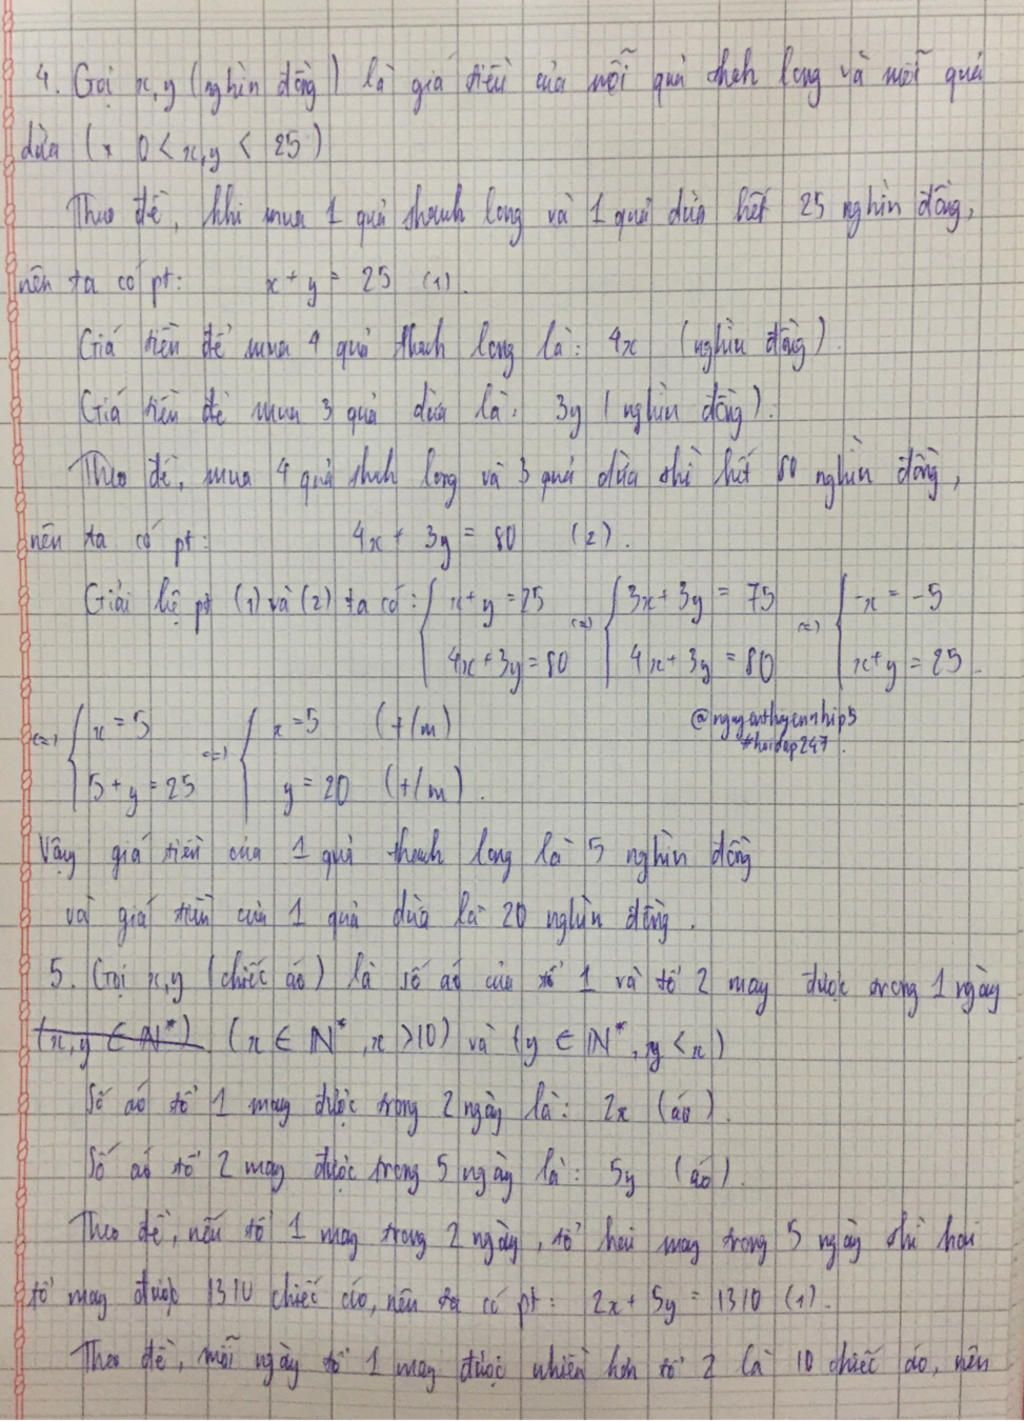 4. Gọi x, y (nghìn đồng) là giá tiền của mỗi quả thanh long và mỗi quả
dừa (x 0 < x,y < 25)
Theo đề, khi mua 1 quả thanh long và 1 quả dừa hết 25 nghìn đồng,
nên ta có pt: x + y = 25 (1).
Giá tiền để mua 4 quả thanh long là: 4x (nghìn đồng).
Giá tiền để mua 3 quả dừa là: 3y (nghìn đồng).
Theo đề, mua 4 quả thanh long và 3 quả dừa thì hết 80 nghìn đồng,
nên ta có pt: 4x + 3y = 80 (2).
Giải hệ pt (1) và (2) ta có: { x + y = 25 (=) { 3x + 3y = 75 (=) { -x = -5
4x + 3y = 80 4x + 3y = 80 x + y = 25.
(=) { x = 5 (=) { x = 5 (t/m)
@nguyenthuyennhip5
#hoidap247.
5 + y = 25 y = 20 (t/m).
Vậy giá tiền của 1 quả thanh long là 5 nghìn đồng
và giá tiền của 1 quả dừa là 20 nghìn đồng.
5. Gọi x, y (chiếc áo) là số áo của tổ 1 và tổ 2 may được trong 1 ngày
(x, y ∈ N*) (x ∈ N*, x > 10) và (y ∈ N*, y < x)
Số áo tổ 1 may được trong 2 ngày là: 2x (áo).
Số áo tổ 2 may được trong 5 ngày là: 5y (áo).
Theo đề, nếu tổ 1 may trong 2 ngày, tổ hai may trong 5 ngày thì hai
tổ may được 1310 chiếc áo, nên ta có pt: 2x + 5y = 1310 (1).
Theo đề, mỗi ngày tổ 1 may được nhiều hơn tổ 2 là 10 chiếc áo, nên